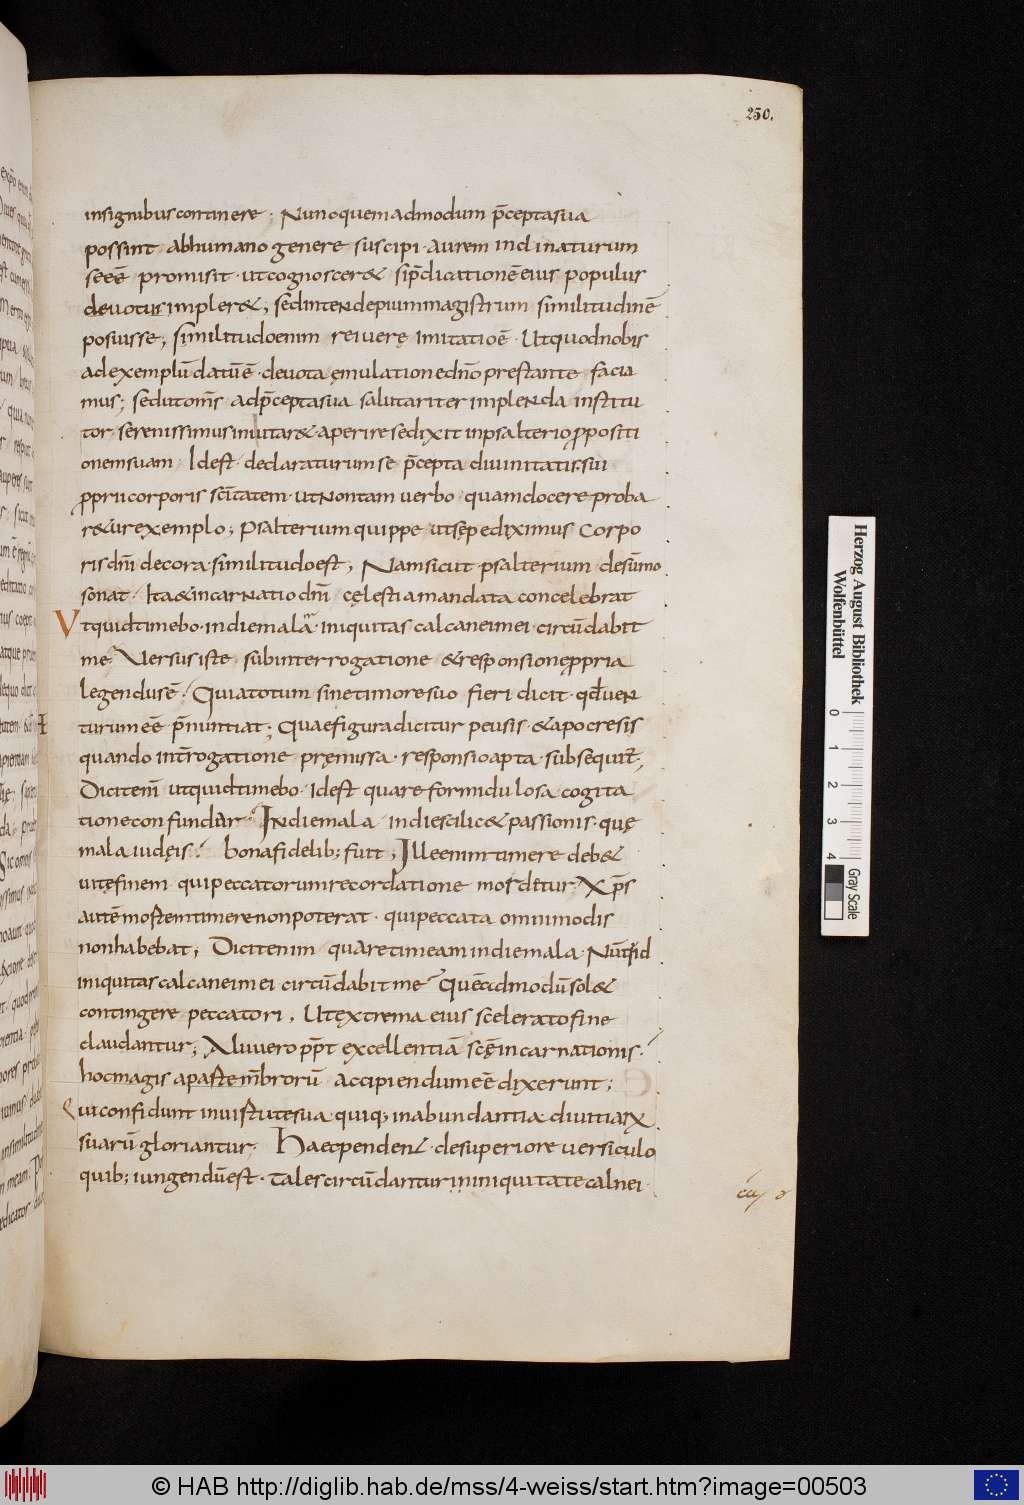 250.
insignibus continere · Nunc quemadmodum p̄cepta sua
possint · ab humano genere suscipi · aurem inclinaturum
se eē̄ promisit · ut cognosceret& si p̄dicationē eius populus
deuotus impler&; sed intendē pium magistrum similitudinē
posuisse; similitudo enim rei uerę imitatio ē · Ut quod nobis
ad exemplū datū ē · deuota ęmulatione dn̄o prestante faciamus
mus; sed ut omn̄s ad p̄cepta sua salutariter implenda institu
tor serenissimus inuitar& aperire se dixit in psalterio ꝓpositi
onem suam · Idest declaraturum se p̄cepta diuinitatis sui
ꝓprii corporis sc̄itatem · ut non tam uerbo quam docere proba
r&ur exemplo; Psalterium quippe ut sępe diximus corpo
ris dn̄i decora similitudo est; Nam sicut psalterium desūmo
sonat · Ita & incarnatio dn̄i cęlestia mandata concelebrat
Ut quid timebo · in die mala · iniquitas calcanei mei circūdabit
me Versus iste sub interrogatione & responsione ꝓpria
legendus ē · Qui a totum sine timore suo fieri dicit · qđ uen
turum eē p̄nuntiat; Quae figura dicitur peusis · & apocresis
quando int̄rogatione pręmissa · responsio apta subsequit̄;
Dicit enī ut quid timebo · Idest quare formidulosa cogita
tione confundar · In die mala in die scilic& passionis · quę
mala iudęis · bona fidelib; fuit; Ille enim timere deb&
uitę finem qui peccatorum recordatione mord&ur · Xp̄s
autē mortem timere non poterat · qui peccata omnimodis
non habebat; Dicit enim quare timeam in die mala · Nūquid
iniquitas calcanei mei circūdabit me Quēadmodū sol&
contingere peccatori, Ut extrema eius scelerato fine
claudantur; Alii uero ꝓp̄t excellentiā scę̄ incarnationis ·
hoc magis a parte mēbrorū accipiendum eē dixerunt;
Qui confidunt in uirtute sua · quiq; in abundantia diuitiarꝝ
suarū gloriantur · Haec penden& de superiore uersiculo
quib; iungendū est · Tales circūdantur in iniquitate calnei ·
Herzog August Bibliothek
Wolfenbüttel
0 1 2 3 4
Gray Scale
© HAB http://diglib.hab.de/mss/4-weiss/start.htm?image=00503